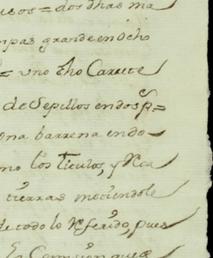 dos dhas ma
grande en ocho
= uno dho Carrete
de Sepillos en dos p=
una barrena en do
mo los titulos, y
tierras metiendole
de todo lo Referido, pues
la Comission que